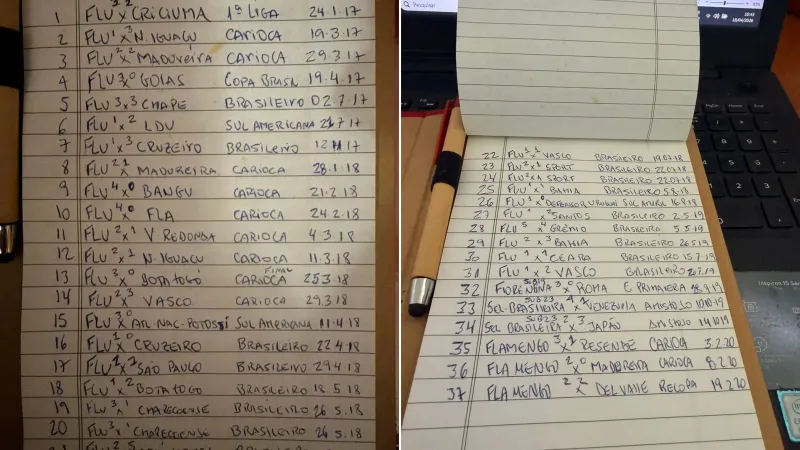 1 FLU 3 x 2 CRICIUMA 1ª LIGA 24.1.17
2 FLU 1 x 3 N. IGUAÇU CARIOCA 19.3.17
3 FLU 2 x 2 MADUREIRA CARIOCA 29.3.17
4 FLU 3 x 0 GOIAS COPA BRASIL 19.4.17
5 FLU 3 x 3 CHAPE BRASILEIRO 02.7.17
6 FLU 1 x 2 LDU SUL AMERICANA 7.17
7 FLU 1 x 3 CRUZEIRO BRASILEIRO 17
8 FLU 2 x 1 MADUREIRA CARIOCA 28.1.18
9 FLU 4 x 0 BANGU CARIOCA 21.2.18
10 FLU 4 x 0 FLA CARIOCA 24.2.18
11 FLU 2 x 1 V REDONDA CARIOCA 4.3.18
12 FLU 2 x 1 N. IGUAÇU CARIOCA 11.3.18
13 FLU 3 x 0 BOTAFOGO CARIOCA FINAL 25.3.18
14 FLU 2 x 3 VASCO CARIOCA 29.3.18
15 FLU 3 x 0 ATL NAC-POTOSSÍ SUL AMERICANA 11.4.18
16 FLU 1 x 0 CRUZEIRO BRASILEIRO 22.4.18
17 FLU 1 x 2 SÃO PAULO BRASILEIRO 29.4.18
18 FLU 1 x 2 BOTAFOGO BRASILEIRO 18.5.18
19 FLU 3 x 1 CHAPECOENSE BRASILEIRO 26.5.18
20 FLU 3 x 1 CHAPECOENSE BRASILEIRO 26.5.18
FLU 2 5
Pesquisar
22 FLU 1 x 1 VASCO BRASILEIRO 19.07.18
23 FLU 2 x 1 SPORT BRASILEIRO 22.07.18
24 FLU 2 x 1 SPORT BRASILEIRO 22.07.18
25 FLU 1 x 1 BAHIA BRASILEIRO 5.8.18
26 FLU x 0 DEFENSOR URUGUAI SUL AMERIC 16.8.18
27 FLU 1 x 2 SANTOS BRASILEIRO 2.5.19
28 FLU 5 x 4 GRÊMIO BRASILEIRO 5.5.19
29 FLU 2 x 3 BAHIA BRASILEIRO 26.5.19
30 FLU 1 x 1 CEARA BRASILEIRO 15.7.19
31 FLU 1 x 2 VASCO BRASILEIRO 7.19
32 FIORENTINA SUB19 3 x 0 ROMA C PRIMAVERA 18.9.19
33 SEL-BRASILEIRA SUB23 4 x 1 VENEZUELA AMISTOSO 10.10.19
34 SEL BRASILEIRA SUB23 2 x 3 JAPÃO AMISTOSO 14.10.19
35 FLAMENGO 3 x 1 RESENDE CARIOCA 3.2.20
36 FLAMENGO 2 x 0 MADUREIRA CARIOCA 8.2.20
37 FLAMENGO 2 x 2 DEL VALLE RECOPA 19.2.20
Inspiron 15